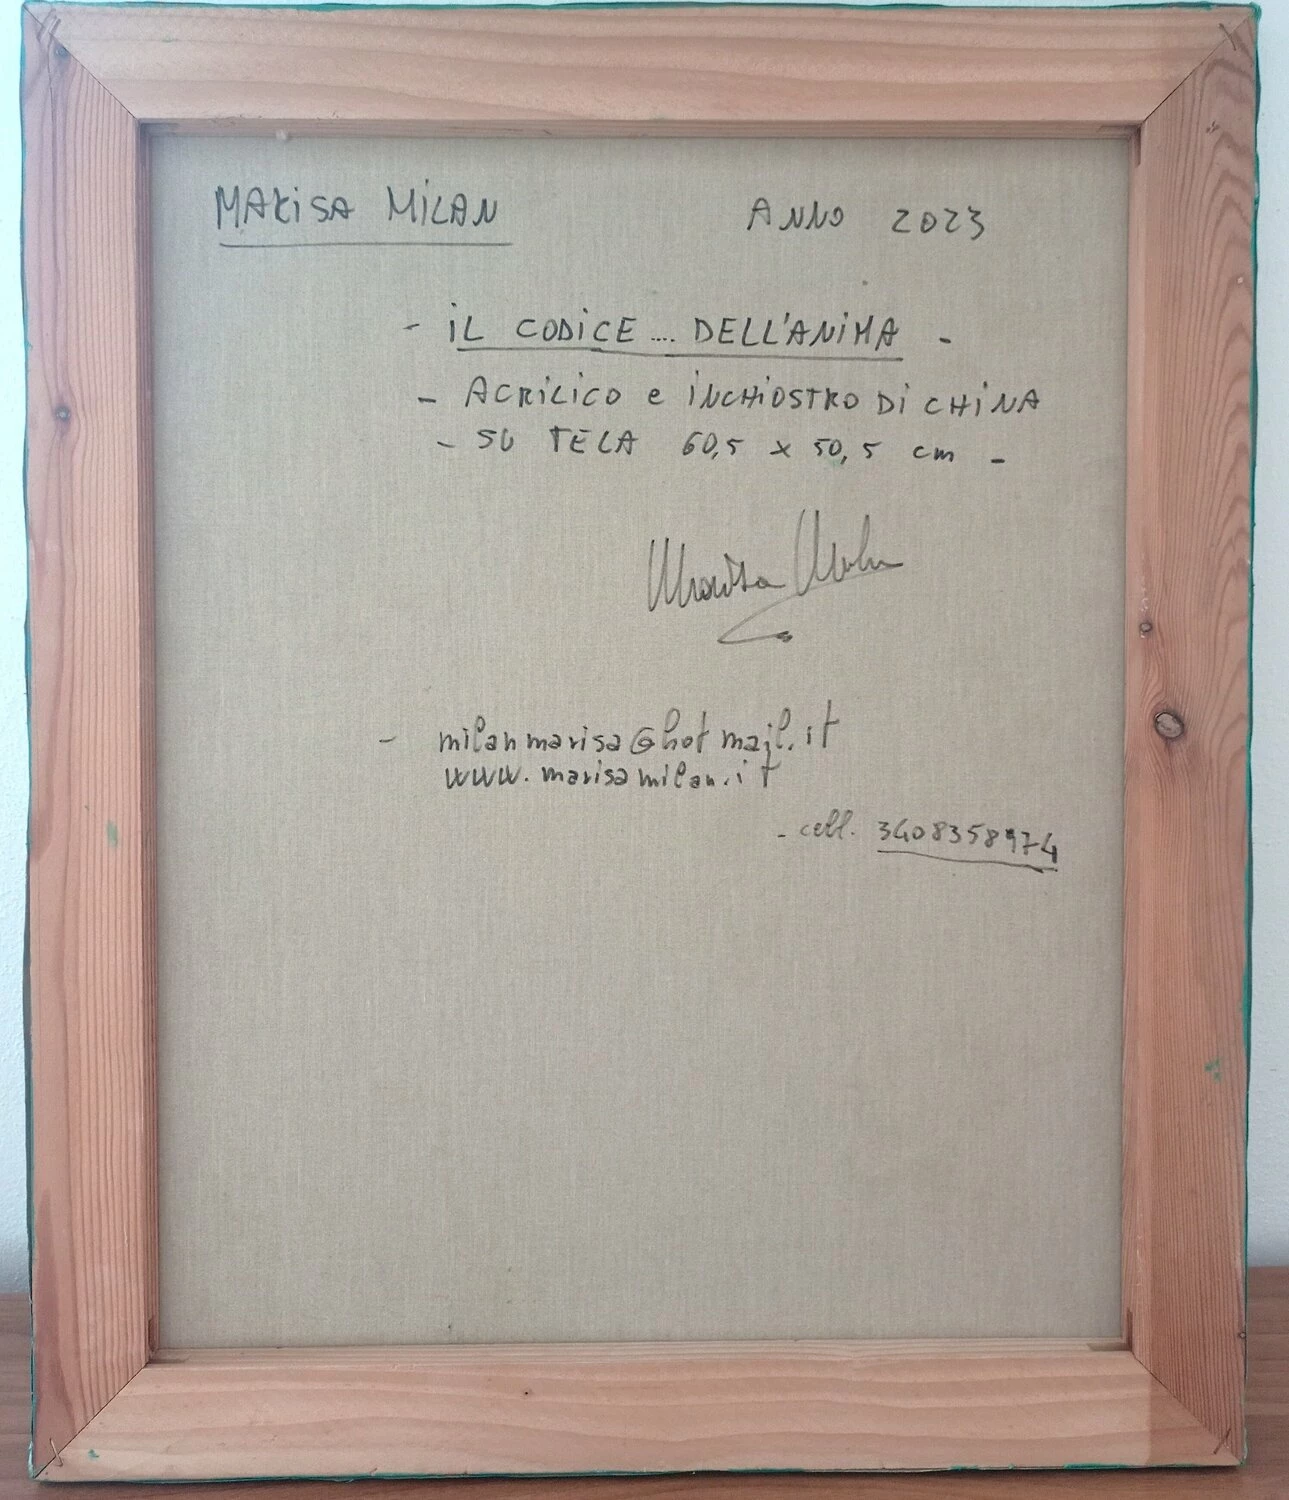 MARISA MILAN ANNO 2023
- iL CODICE .... DELL'ANIMA -
- ACRILICO e iNCHiOSTRO Di CHiNA
- SU TELA 60,5 x 50,5 cm -
Marisa Milan
- milanmarisa@hotmail.it
www.marisamilan.it
- cell. 3408358974